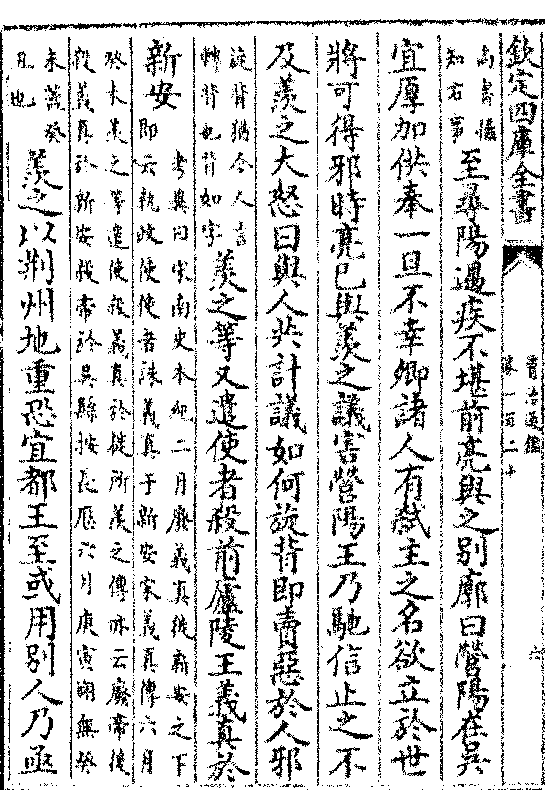 欽定四庫全書
資治通鑑
卷一百二十
六
尚書儀
知右
至尋陽遇疾不堪前亮與之别廓曰營陽在吳
宜厚加供奉一旦不幸卿諸人有弑主之名欲立於世
將可得邪時亮已與羨之議害營陽王乃馳信止之不
及羨之大怒曰與人共計議如何旋背即賣惡於人邪
旋背猶今人言
轉背也背如字
羨之等又遣使者殺前廬陵王義真於
新安
考異曰宋南史本紀二月廢義真徙新安之下
即云執政使使者誅義真于新安宋義真傳六月
癸未羨之等遣使殺義真於徙所羨之傳亦云廢帝後
殺義真於新安殺帝於吳縣按長歴六月庚寅朔無癸
未蓋癸
丑也
羨之以荆州地重恐宜都王至或用别人乃亟